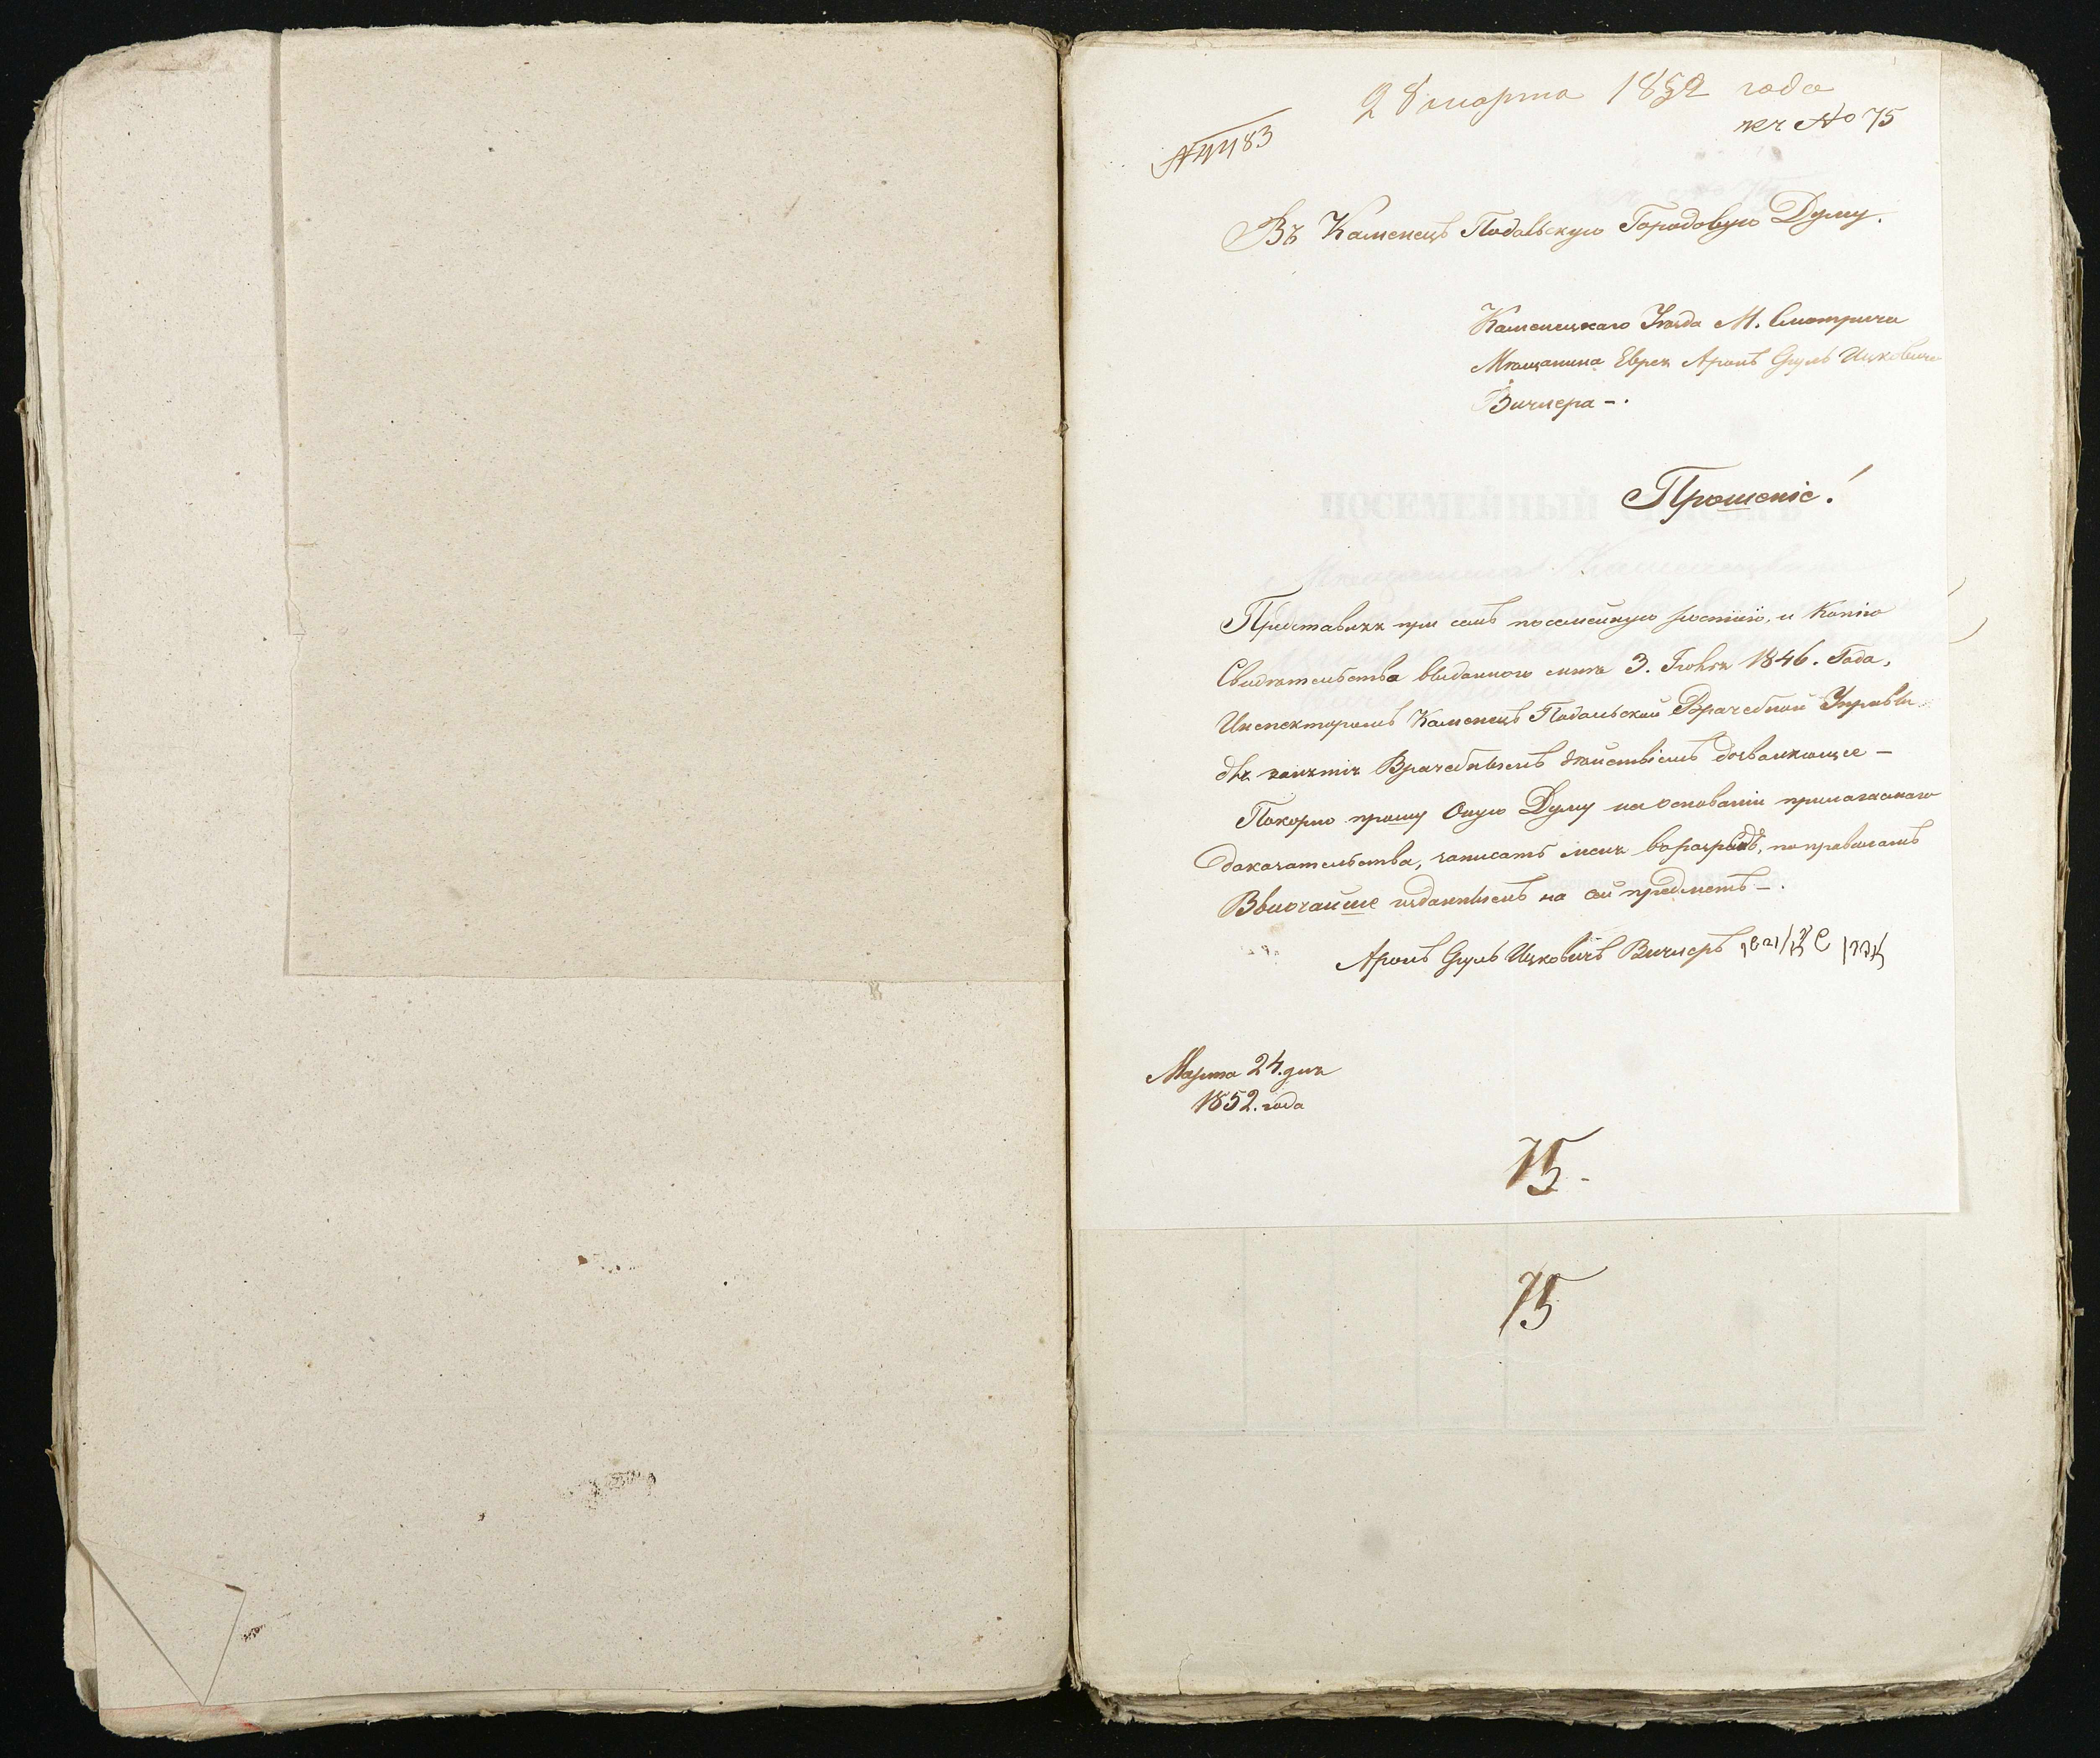 28 марта 1852 года
№ 4483
№ 75
Въ Каменецъ Подольскую Городовую Думу.
Каменецкаго Уѣзда М. Смотрича
Мѣщанина Еврея Аронъ Сруль Ицковича
Вичнера -.
Прошеніе!
Представляя при семъ посемейную и Копію
Свидѣтельства выданного мнѣ 3. Іюня 1846. Года,
Инспекторомъ Каменецъ Подольской Врачебной Управы
для занятія Врачебнымъ дѣйствіемъ дозволяющее -
Покорно прошу Оную Думу на основаніи прилагаемаго
доказательства, записать меня въ разрядъ, по правиламъ
Высочайше изданнымъ на сей предметъ -.
Аронъ Сруль Ицковичъ Вичнеръ
Марта 24. дня
1852. года
75.
75
ПОСЕМЕЙНЫЙ